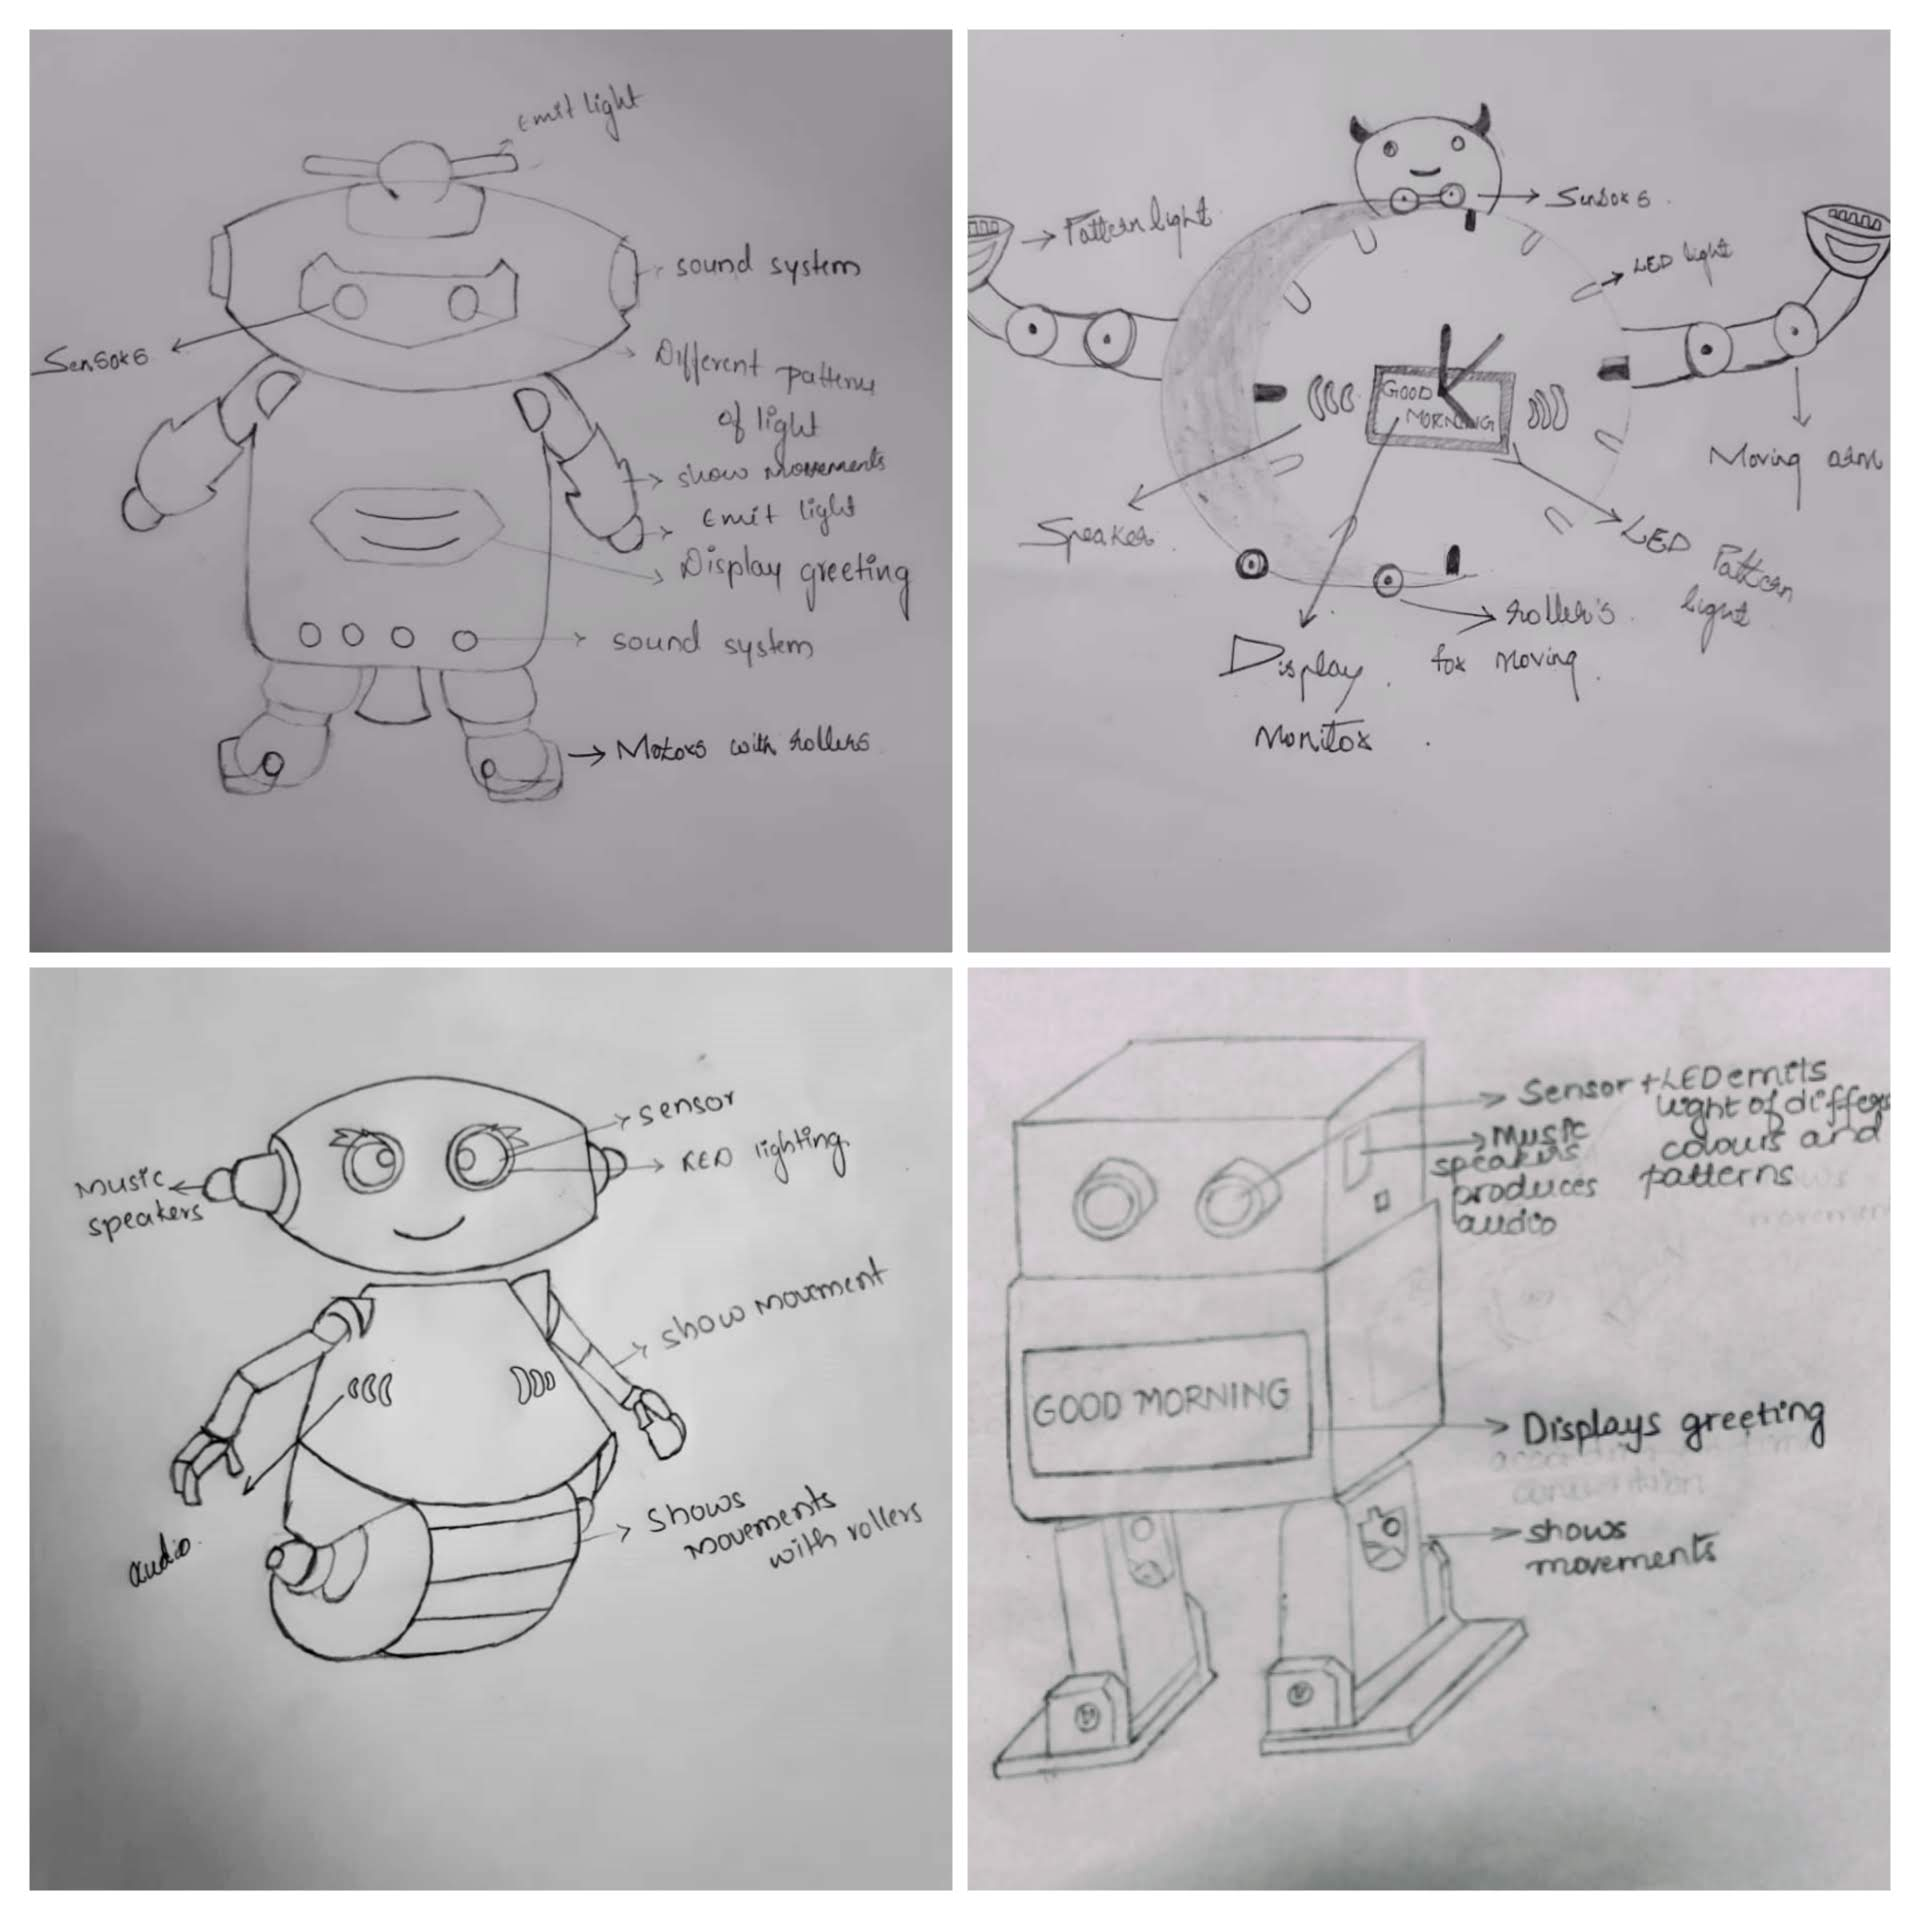 Emit light
sound system
Sensors
Different patterns
of light
show movements
Emit light
Display greeting
sound system
Motors with rollers
Sensors
Pattern light
LED light
GOOD
MORNING
Moving arm
Speaker
LED Pattern
light
roller's
for moving
Display
Monitor
sensor
LED lighting
Music
speakers
show movement
audio
shows
movements
with rollers
Sensor + LED emits
light of differ
colours and
patterns
Music
speakers
produces
audio
GOOD MORNING
Displays greeting
shows
movements